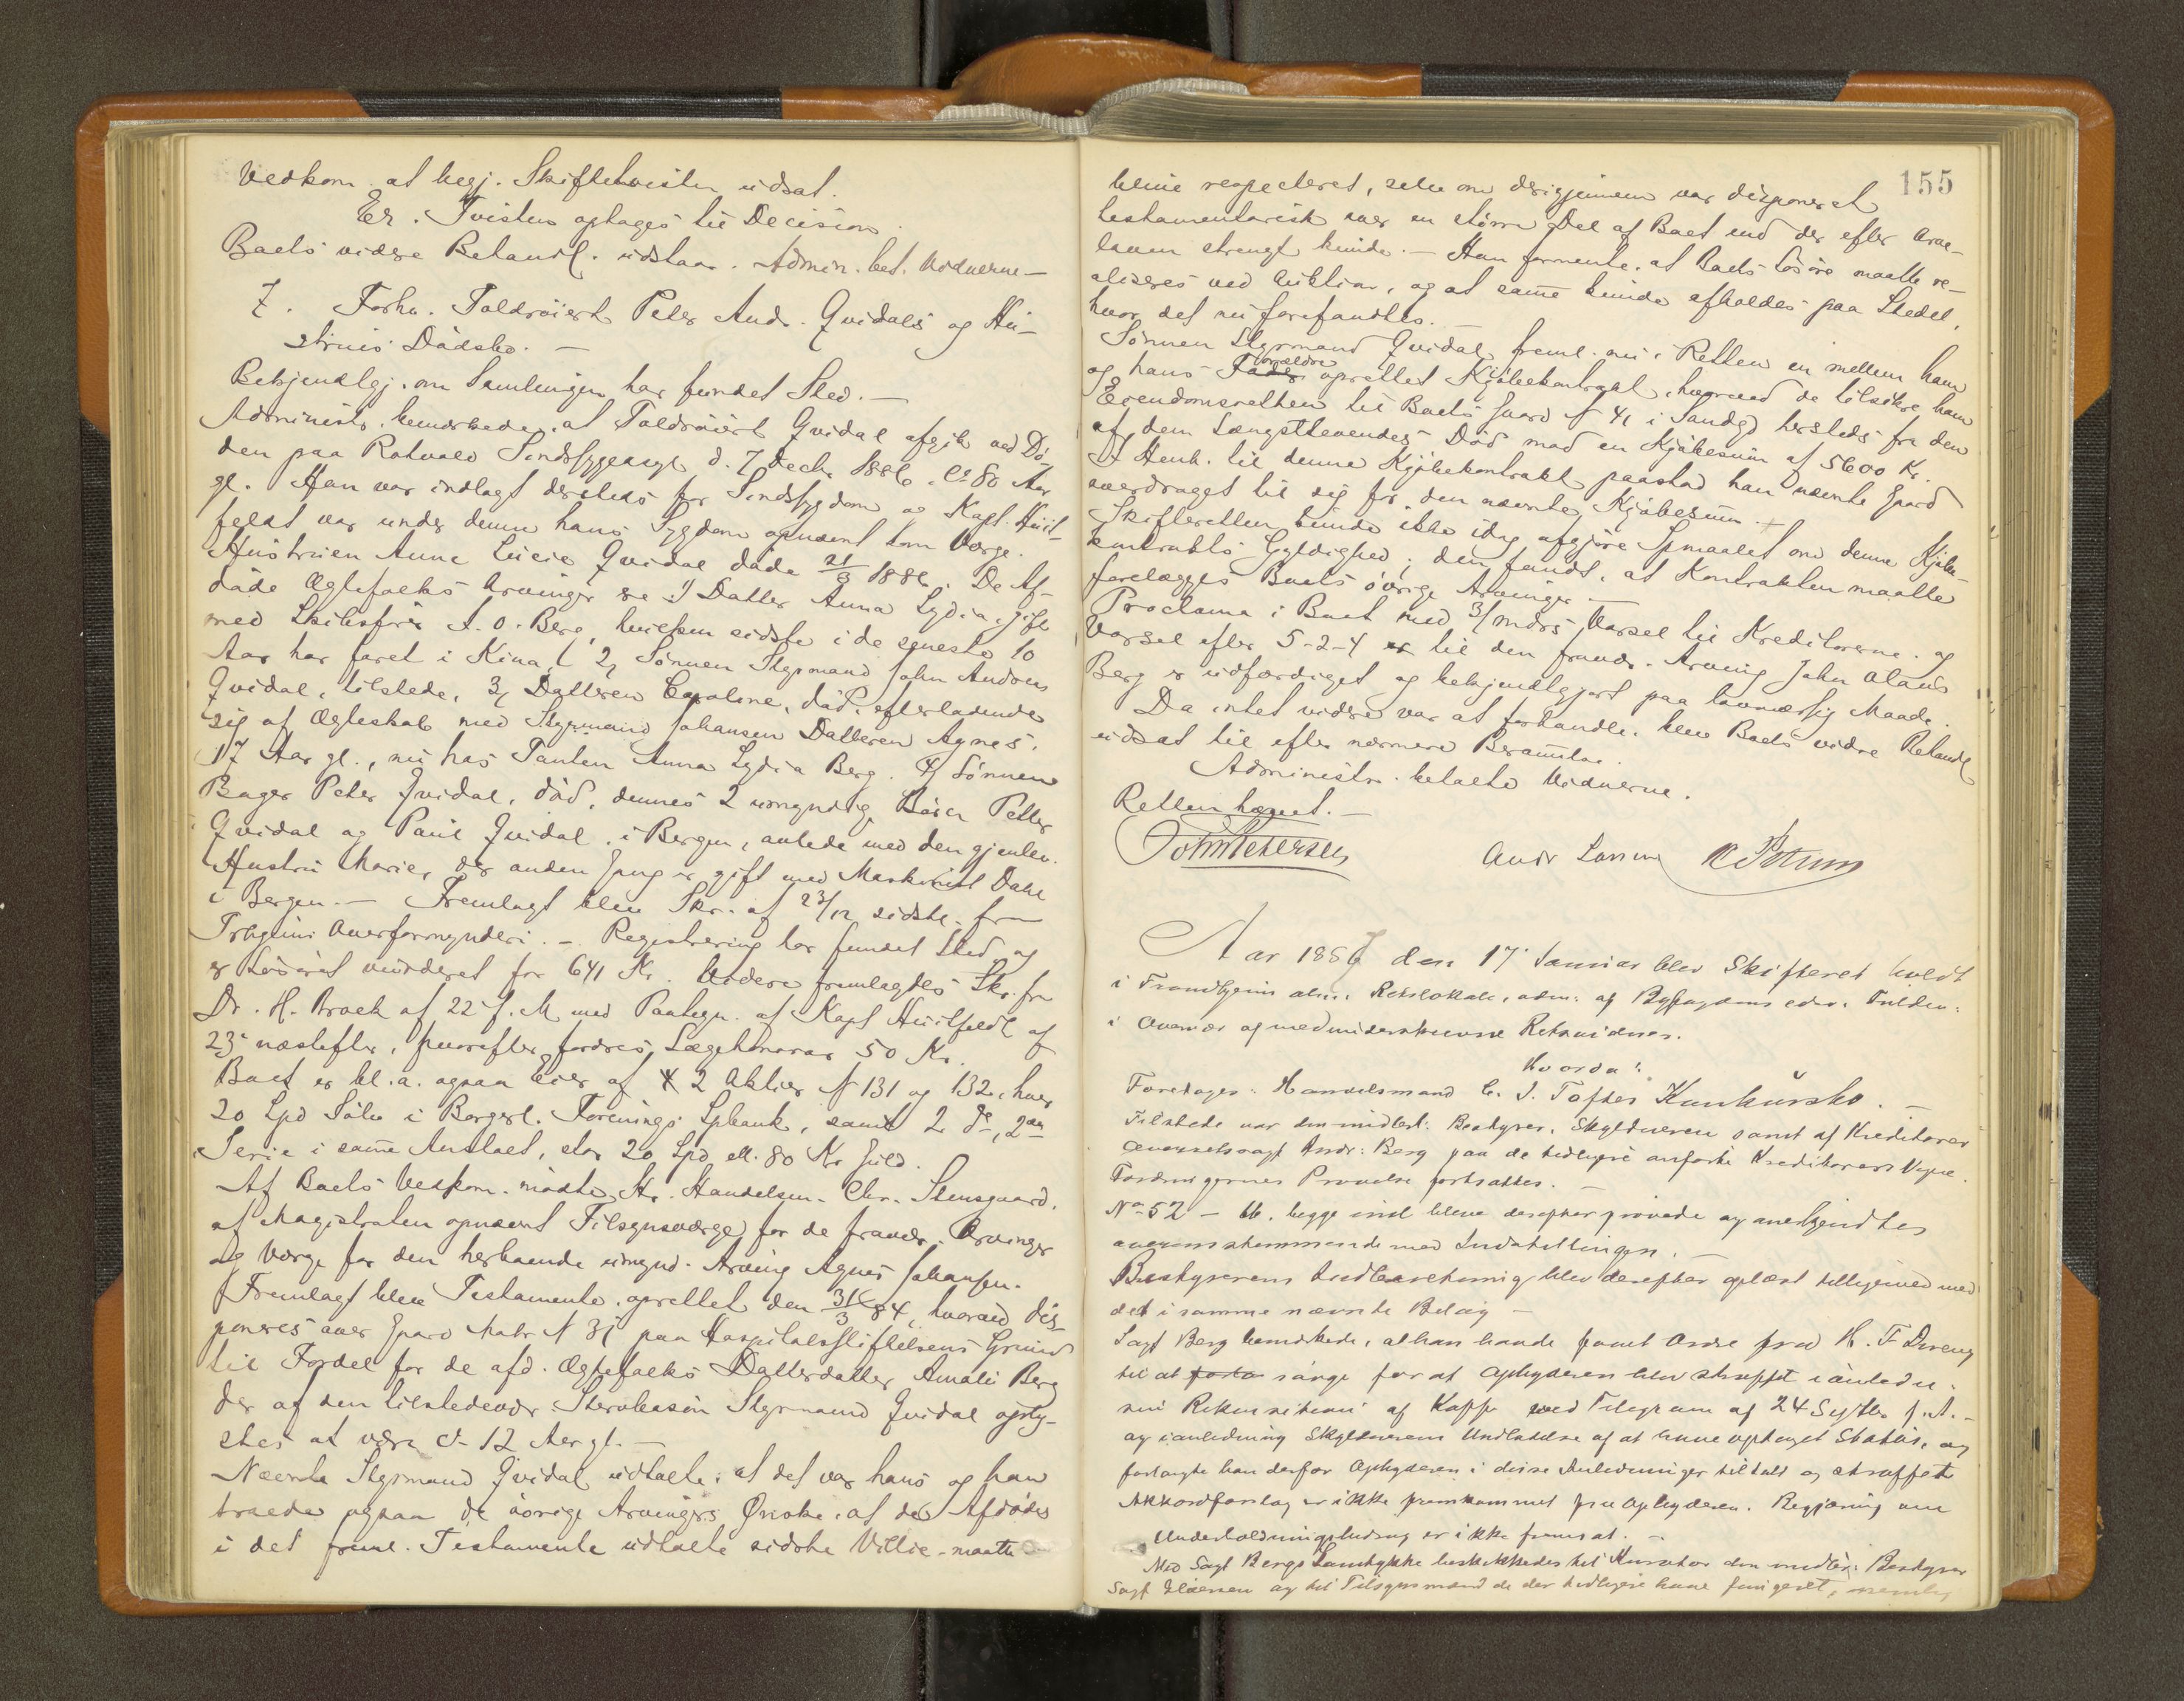 Vedkom. at begj. Skiftetvisten udsat.
Er. Tvisten optages til Decision.
Boets videre Behandl. udstaar. Admin. bet. Vidnerne —
7. Forhv. Toldrøiert Peter Andr. Qvidals og Hu-
struis Dødsbo. —
Bekjendtgj. om Samlingen har fundet Sted. —
Administr. bemærkede, at Toldrøiert Qvidal afgik ved Dø-
den paa Rotvold Sindssygeasyl d. 7 Decb. 1886, ca 80 Aar
gl. Han var indlagt dersteds for Sindssygdom og Kapt. Huit-
feldt var under denne hans Sygdom opnævnt som Værge.
Hustruen Anne Lucie Qvidal døde 21/3 1886. De Af-
døde Ægtefolks Arvinger ere 1) Datter Anna Lydia, gift
med Skibsfører A. O. Berg, hvilken sidste i de seneste 10
Aar har faret i Kina, 2) Sønnen Styrmand John Andreas
Qvidal, tilstede, 3) Datteren Caroline, død, efterladende
sig af Ægteskab med Styrmand Johansen Datteren Agnes,
17 Aar gl., nu hos Tanten Anna Lydia Berg. 4) Sønnen
Bager Peter Qvidal, død, dennes 2 umyndige Børn Petter
Qvidal og Paul Qvidal, i Bergen, avlede med den gjenlev.
Hustru Marie, der anden Gang er gift med Maskinist Dahl
i Bergen. — Fremlagt blev Skr. af 23/12 sidstl. fra
Trhjems Overformynderi. — Registrering har fundet Sted og
er Løsøret vurderet for 641 Kr. Videre fremlagdes Skr. fra
Dr. H. Brock af 22 f. M. med Paategn. af Kapt Huitfeldt af
23 næstefter, hvorefter fordres Lægehonorar 50 Kr.
Boet er bl. a. ogsaa Eier af 2 Aktier N 131 og 132, hver
20 Spd Sølv i Borgerl. Forenings Spbank, samt 2 do, 2den
Serie i samme Anstalt, stor 20 Spd ell. 80 Kr Guld.
Af Boets Vedkom. mødte Hr. Handelsm. Chr. Stensgaard,
af Magistraten opnævnt Tilsynsværge for de fravær. Arvinger
og Værge for den herboende umynd. Arving Agnes Johansen.
Fremlagt blev Testamente, oprettet den 31/3 84, hvorved dis-
poneres over Gaard Matr N 31 paa Hospitalsstiftelsens Grund
til Fordel for de afd. Ægtefolks Datterdatter Amalie Berg
der af den tilstedevær. Stervbosøn Styrmand Qvidal oply-
stes at være ca 12 Aar gl. —
Nævnte Styrmand Qvidal udtalte, at det var hans og han
troede ogsaa de øvrige Arvingers Ønske, at de Afdødes
i det freml. Testamente udtalte sidste Villie maatte
155
blive respecteret, selv om derigjennem var disponeret
testamentarisk over en større Del af Boet end der efter Arve-
loven strengt kunde. — Han formente, at Boets Løsøre maatte re-
aliseres ved Auktion, og at samme kunde afholdes paa Stedet,
hvor det nu forefandtes. —
Sønnen Styrmand Qvidal freml. nu i Retten en mellem ham
og hans Forældre oprettet Kjøbekontrakt, hvorved de tilsikre ham
Eiendomsretten til Boets Gaard N 41 i Sandgd hersteds fra den
af dem Længstlevendes Død mod en Kjøbesum af 5600 Kr.
I Henh. til denne Kjøbekontrakt paastod han nævnte Gaard
overdraget til sig for den nævnte Kjøbesum. —
Skifteretten kunde ikke idag afgjøre Spmaalet om denne Kjøbe-
kontrakts Gyldighed; den fandt, at Kontrakten maatte
forelægges Boets øvrige Arvinger. —
Proclama i Boet med 3/mdrs Varsel til Kreditorerne og
Varsel efter 5-2-4 til den fravær. Arving John Olaus
Berg er udfærdiget og bekjendtgjort paa lovmæssig Maade.
Da intet videre var at forhandle, blev Boets videre Behandl
udsat til efter nærmere Beramelse.
Administr. betalte Vidnerne.
Retten hævet. —
John Petersen Andr Larsen
Aar 1887 den 17 Januar blev Skifteret holdt
i Trondhjems alm. Retslokale, adm. af Byfogdens edsv. Fuldm.
i Overvær af medunderskrevne Retsvidner.
Hvorda:
Foretoges: Handelsmand C. J. Toftes Konkursbo. —
Tilstede var den midlert. Bestyrer, Skyldneren samt af Kreditorer
Overretssagf. Andr. Berg paa de tidligere anførte Kreditorers Vegne.
Fordringernes Prøvelse fortsattes. —
No 52 - 66, begge incl. bleve derefter prøvede og anerkjendtes
overensstemmende med Indstillingen. —
Bestyrerens Indberetning blev derefter oplæst tilligemed
det i samme nævnte Bilag —
Sagf Berg bemærkede, at han havde faaet Ordre fra
til at sørge for at Opbyderen blev straffet i Anledn.
af Kaffe ved Telegram af 24 Septb. f. A. —
og i Anledning Skyldnerens Undladelse af at have optaget Status, og
forlangte han derfor Opbyderen i disse Anledninger tiltalt og straffet
Akkordforslag er ikke fremkommet fra Opbyderen. Begjæring om
Underholdningsbidrag er ikke fremsat. —
Med Sagf Bergs Samtykke beskikkedes til Kurator den midler. Bestyrer
Sagf og til Tilsynsmænd de der tidligere have fungeret, nemlig